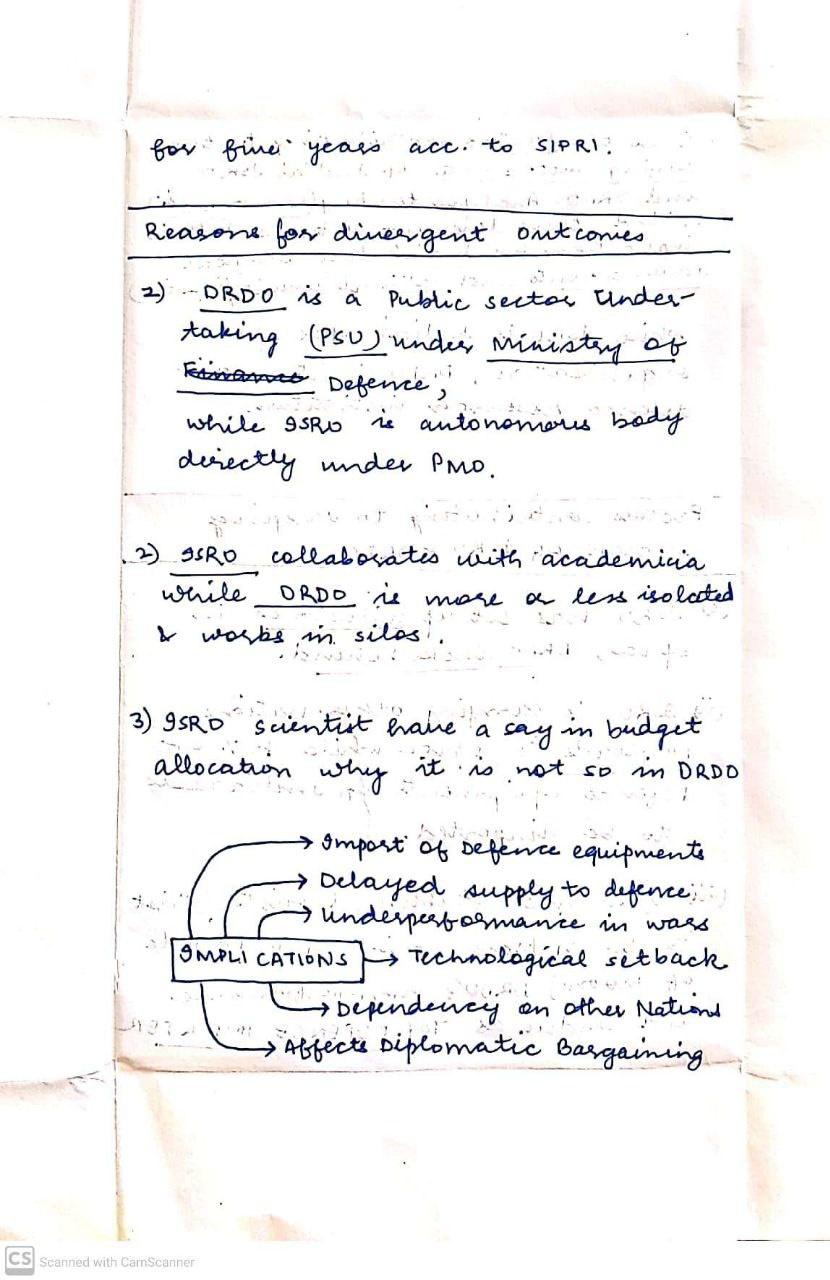 for five years acc. to SIPRI.
Reasons for divergent outcomes
2) DRDO is a Public sector Under-
taking (PSU) under Ministry of
Finance Defence,
while ISRO is autonomous body
directly under PMO.
2) ISRO collaborates with academicia
while DRDO is more or less isolated
& works in silos.
3) ISRO scientist have a say in budget
allocation why it is not so in DRDO
→ Import of Defence equipments
→ Delayed supply to defence
→ Underperformance in wars
IMPLICATIONS → Technological setback
→ Dependency on other Nations
→ Affects Diplomatic Bargaining
CS Scanned with CamScanner